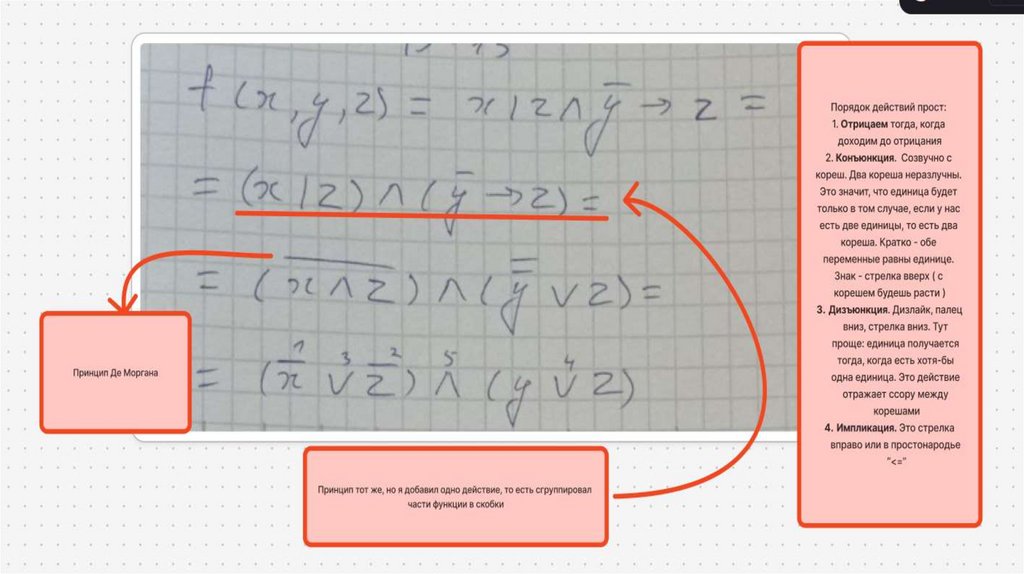 f(x,y,z) = x|z∧y̅ → z =
= (x|z)∧(y̅→z) =
= (x̅∧̅z̅)∧(y̿∨z)=
= (x̅ ∨ z̅) ∧ (y ∨ z)
1 3 2 5 4
Принцип Де Моргана
Принцип тот же, но я добавил одно действие, то есть сгруппировал
части функции в скобки
Порядок действий прост:
1. Отрицаем тогда, когда
доходим до отрицания
2. Конъюнкция. Созвучно с
кореш. Два кореша неразлучны.
Это значит, что единица будет
только в том случае, если у нас
есть две единицы, то есть два
кореша. Кратко - обе
переменные равны единице.
Знак - стрелка вверх ( с
корешем будешь расти )
3. Дизъюнкция. Дизлайк, палец
вниз, стрелка вниз. Тут
проще: единица получается
тогда, когда есть хотя-бы
одна единица. Это действие
отражает ссору между
корешами
4. Импликация. Это стрелка
вправо или в простонародье
"<="